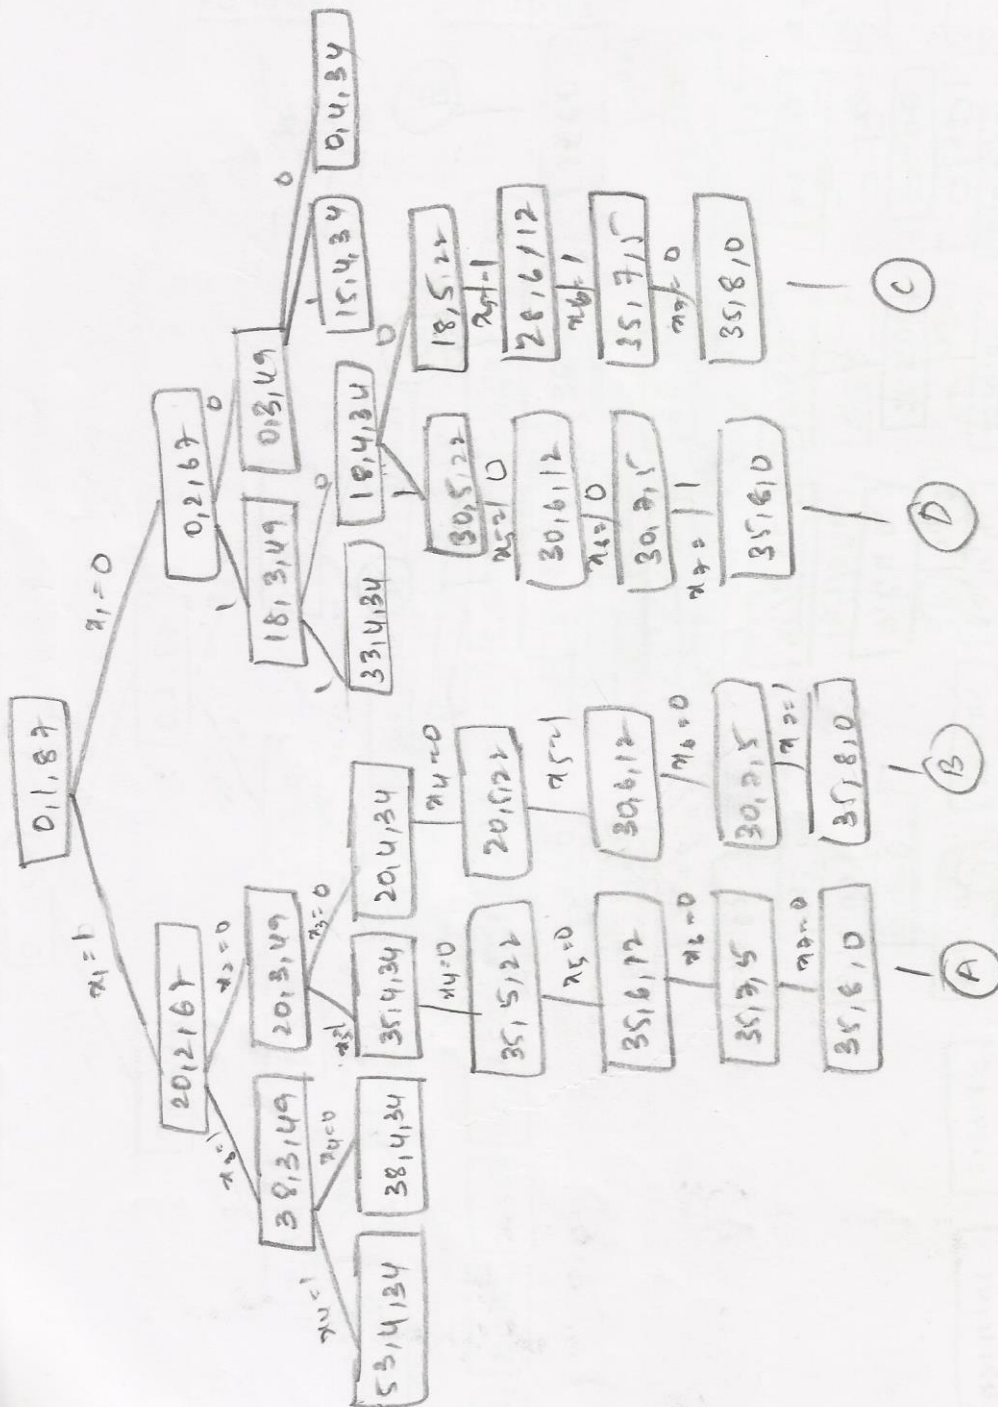 0,1,87
x1=1
x1=0
20,2,67
0,2,67
x2=1
x2=0
1
0
38,3,49
20,3,49
18,3,49
0,3,49
x4=1
x4=0
x3=1
x3=0
1
0
1
0
53,4,34
38,4,34
35,4,34
20,4,34
33,4,34
18,4,34
15,4,34
0,4,34
x4=0
x4=0
1
0
35,5,22
20,5,22
30,5,22
18,5,22
x5=0
x5=1
x5=0
x5=1
35,6,12
30,6,12
30,6,12
28,6,12
x6=0
x6=0
x6=0
x6=1
35,7,5
30,7,5
30,7,5
35,7,5
x7=0
x7=1
x7=1
x7=0
35,8,0
35,8,0
35,8,0
35,8,0
A
B
D
C